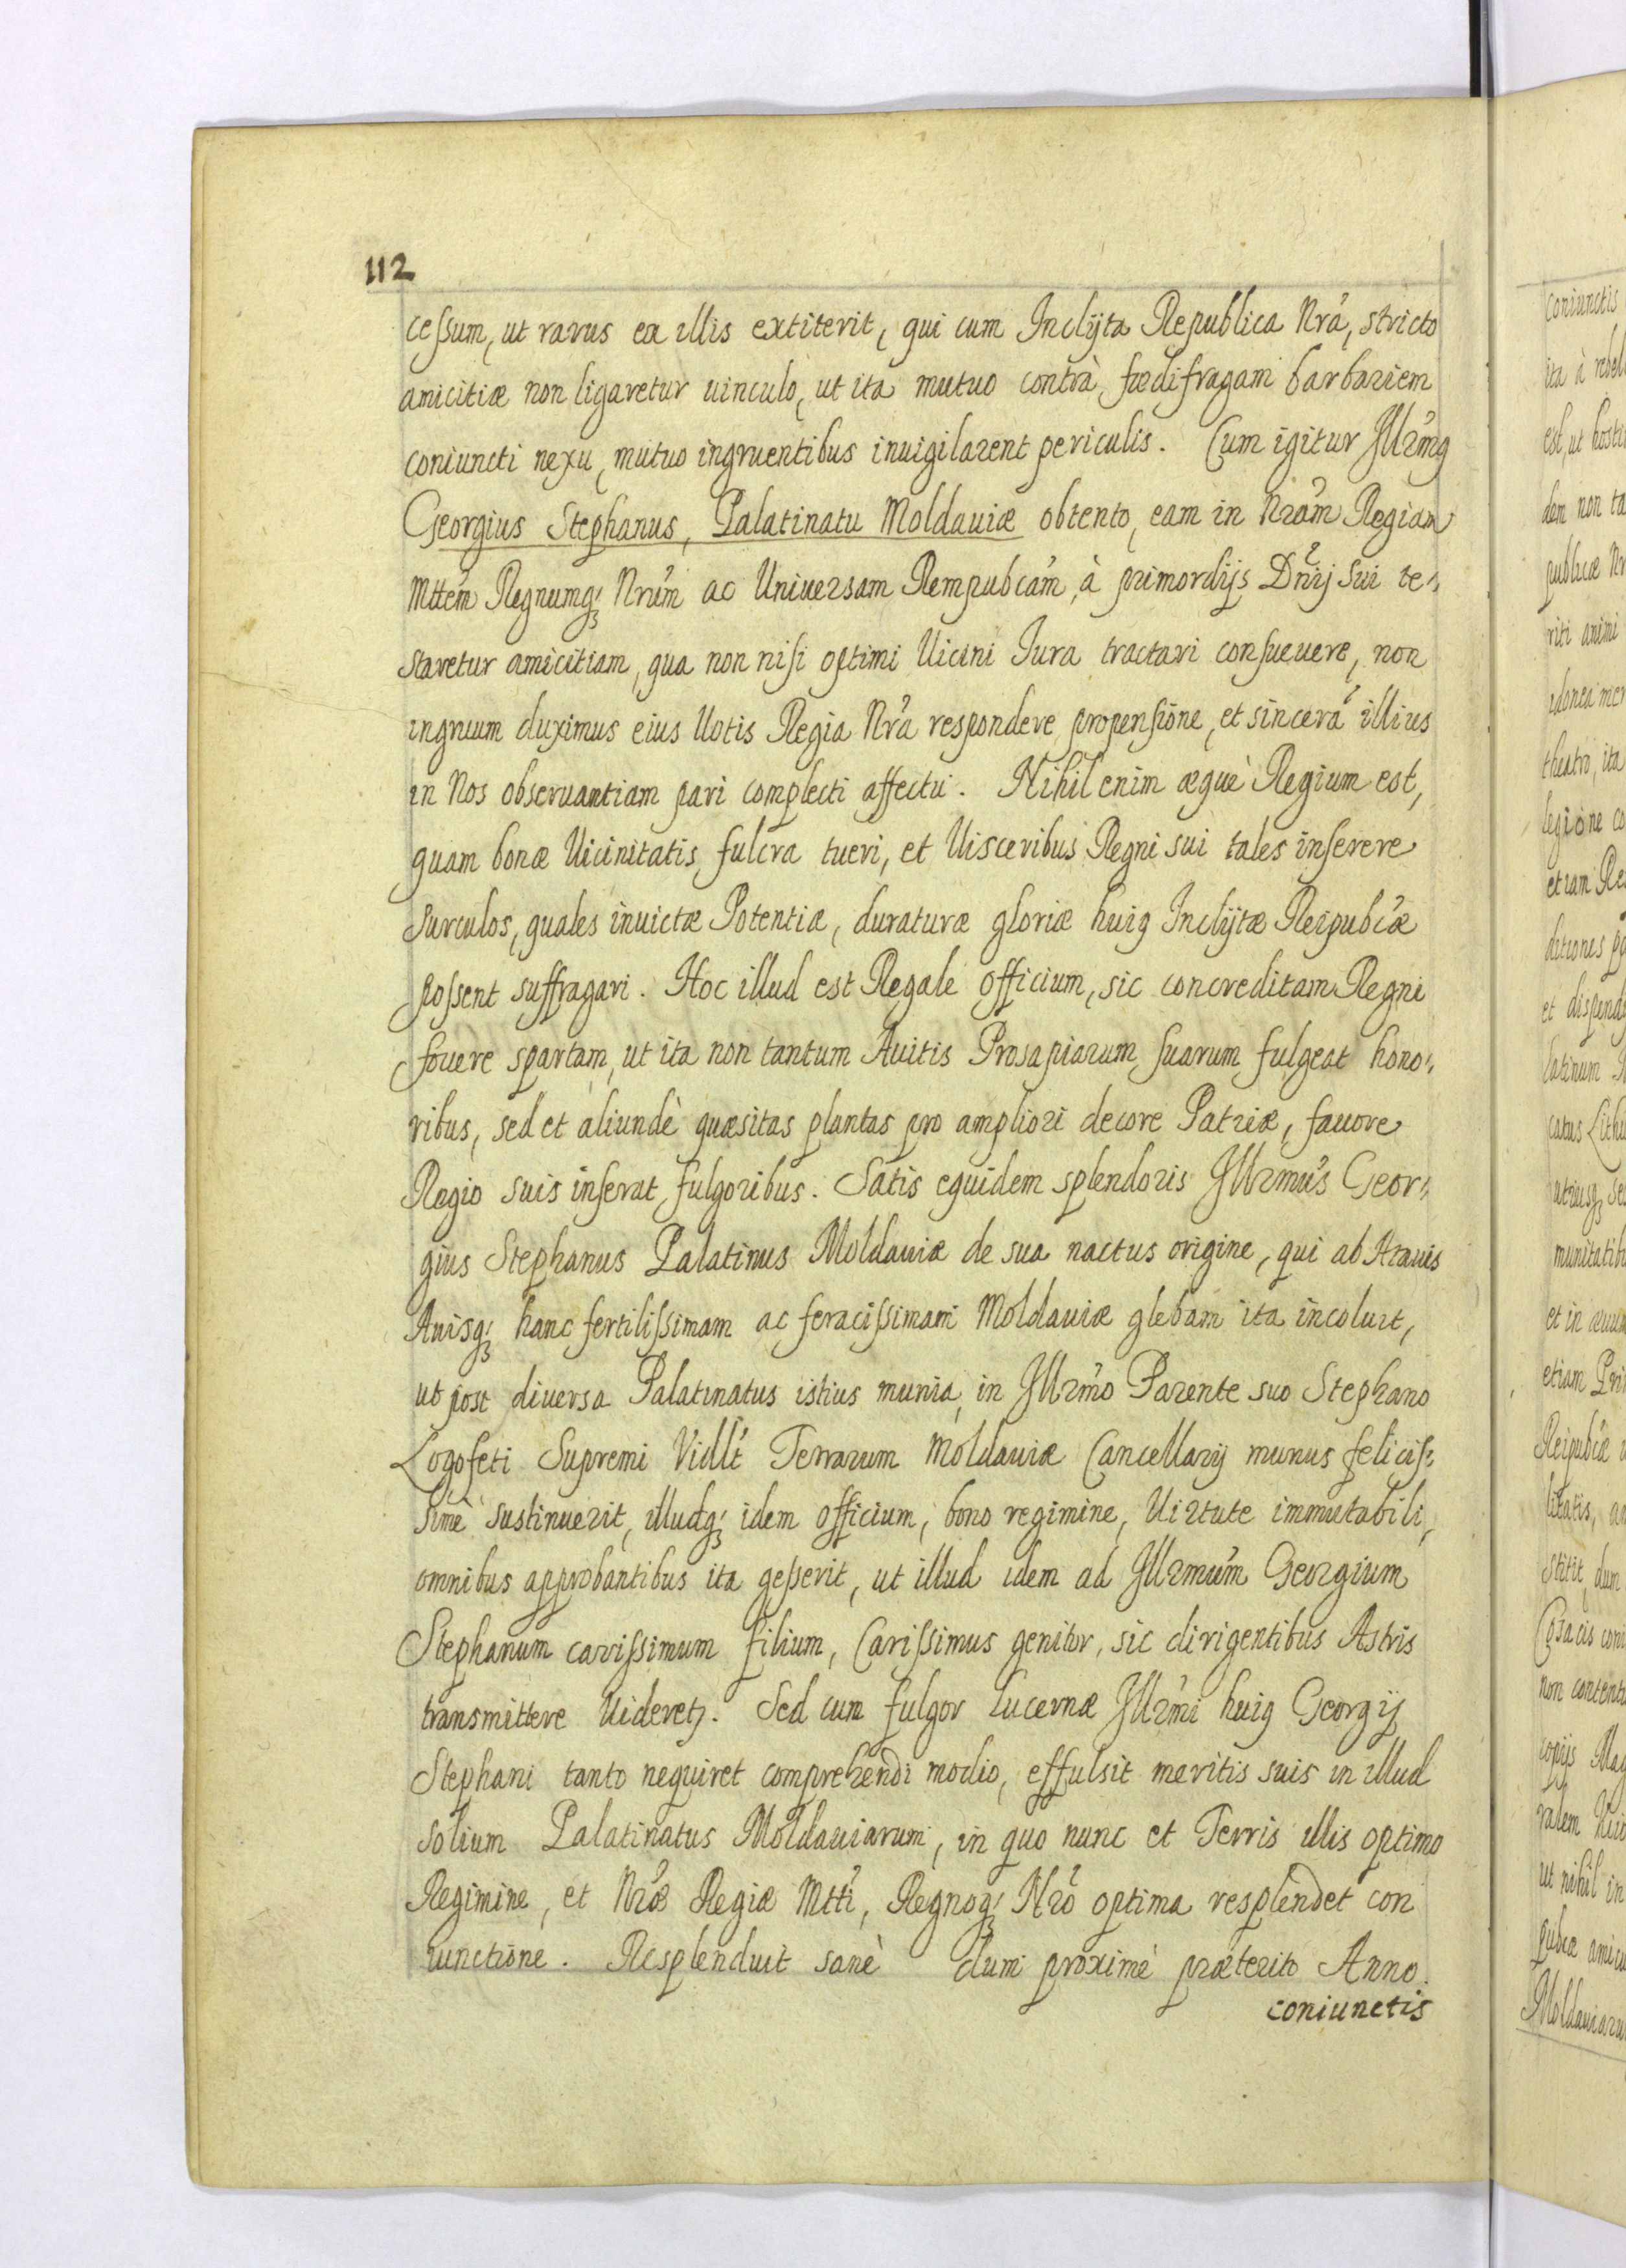 112
cessum, ut rarus ex illis extiterit, qui cum Inclÿta Republica Nrá, stricto
amicitiæ non ligaretur uinculo, ut ita mutuo contrà fœdifragam barbariem
coniuncti nexu, mutuo ingruentibus inuigilarent periculis. Cum igitur Jllr̃mq
Georgius Stephanus, Palatinatu Moldauiæ obtento, eam in Nrám Regiam
Mttém Regnumq; Nrúm ac Universam Rempubcám, à primordijs Dn̄ij sui te-
staretur amicitiam, qua non nisi optimi Uicini Jura tractari consueuere, non
ingruum duximus eius Uotis Regia Nrá respondere propensione, et sincerá illius
in Nos obseruantiam pari complecti affectu. Nihil enim æquè Regium est,
quam bonæ Uicinitatis fulcra tueri, et Uisceribus Regni sui tales inserere
surculos, quales inuictæ Potentiæ, duraturæ gloriæ huiq Inclÿtæ Reipubcæ
possent suffragari. Hoc illud est Regale officium, sic concreditam Regni
fouere spartam, ut ita non tantum Auitis Prosapiarum suarum fulgeat hono-
ribus, sed et aliundè quæsitas plantas pro ampliori decore Patriæ, fauore
Regio suis inserat fulgoribus. Satis equidem splendoris Jllrmús Geor-
gius Stephanus Palatinus Moldauiæ de sua nactus origine, qui ab Atauis
Auisq; hanc fertilissimam ac feracissimam Moldauiæ glebam ita incoluit,
ut post diuersa Palatinatus istius munia, in Jllrm̃o Parente suo Stephano
Logofeti Supremi Vidlt́ Terrarum Moldauiæ Cancellarij munus felicis-
simè sustinuerit, illudq; idem officium, bono regimine, Uirtute immutabili,
omnibus approbantibus ita gesserit, ut illud idem ad Jllrmúm Georgium
Stephanum carissimum filium, Carissimus genitor, sic dirigentibus Astris
transmittere Uideretꝫ. Sed cum fulgor lucernæ Jllrm̃i huiq Georgij
Stephani tanto nequiret comprehendi modio, effulsit meritis suis in illud
solium Palatinatus Moldauiarum, in quo nunc et Terris illis optimo
Regimine, et Nrǽ Regiæ Mttí, Regnoq; Nró optima resplendet con
iunctione. Resplenduit sanè dum proximè præterito Anno.
coniunctis